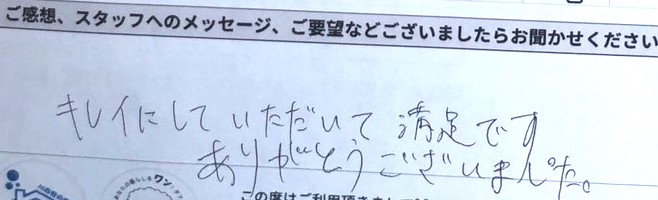 ご感想、スタッフへのメッセージ、ご要望などございましたらお聞かせください
キレイにしていただいて 満足です
ありがとうございました。
この度はご利用頂きまして